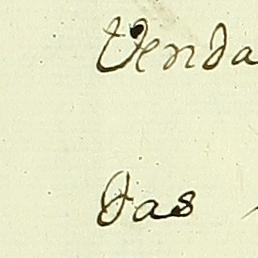 Venda
das